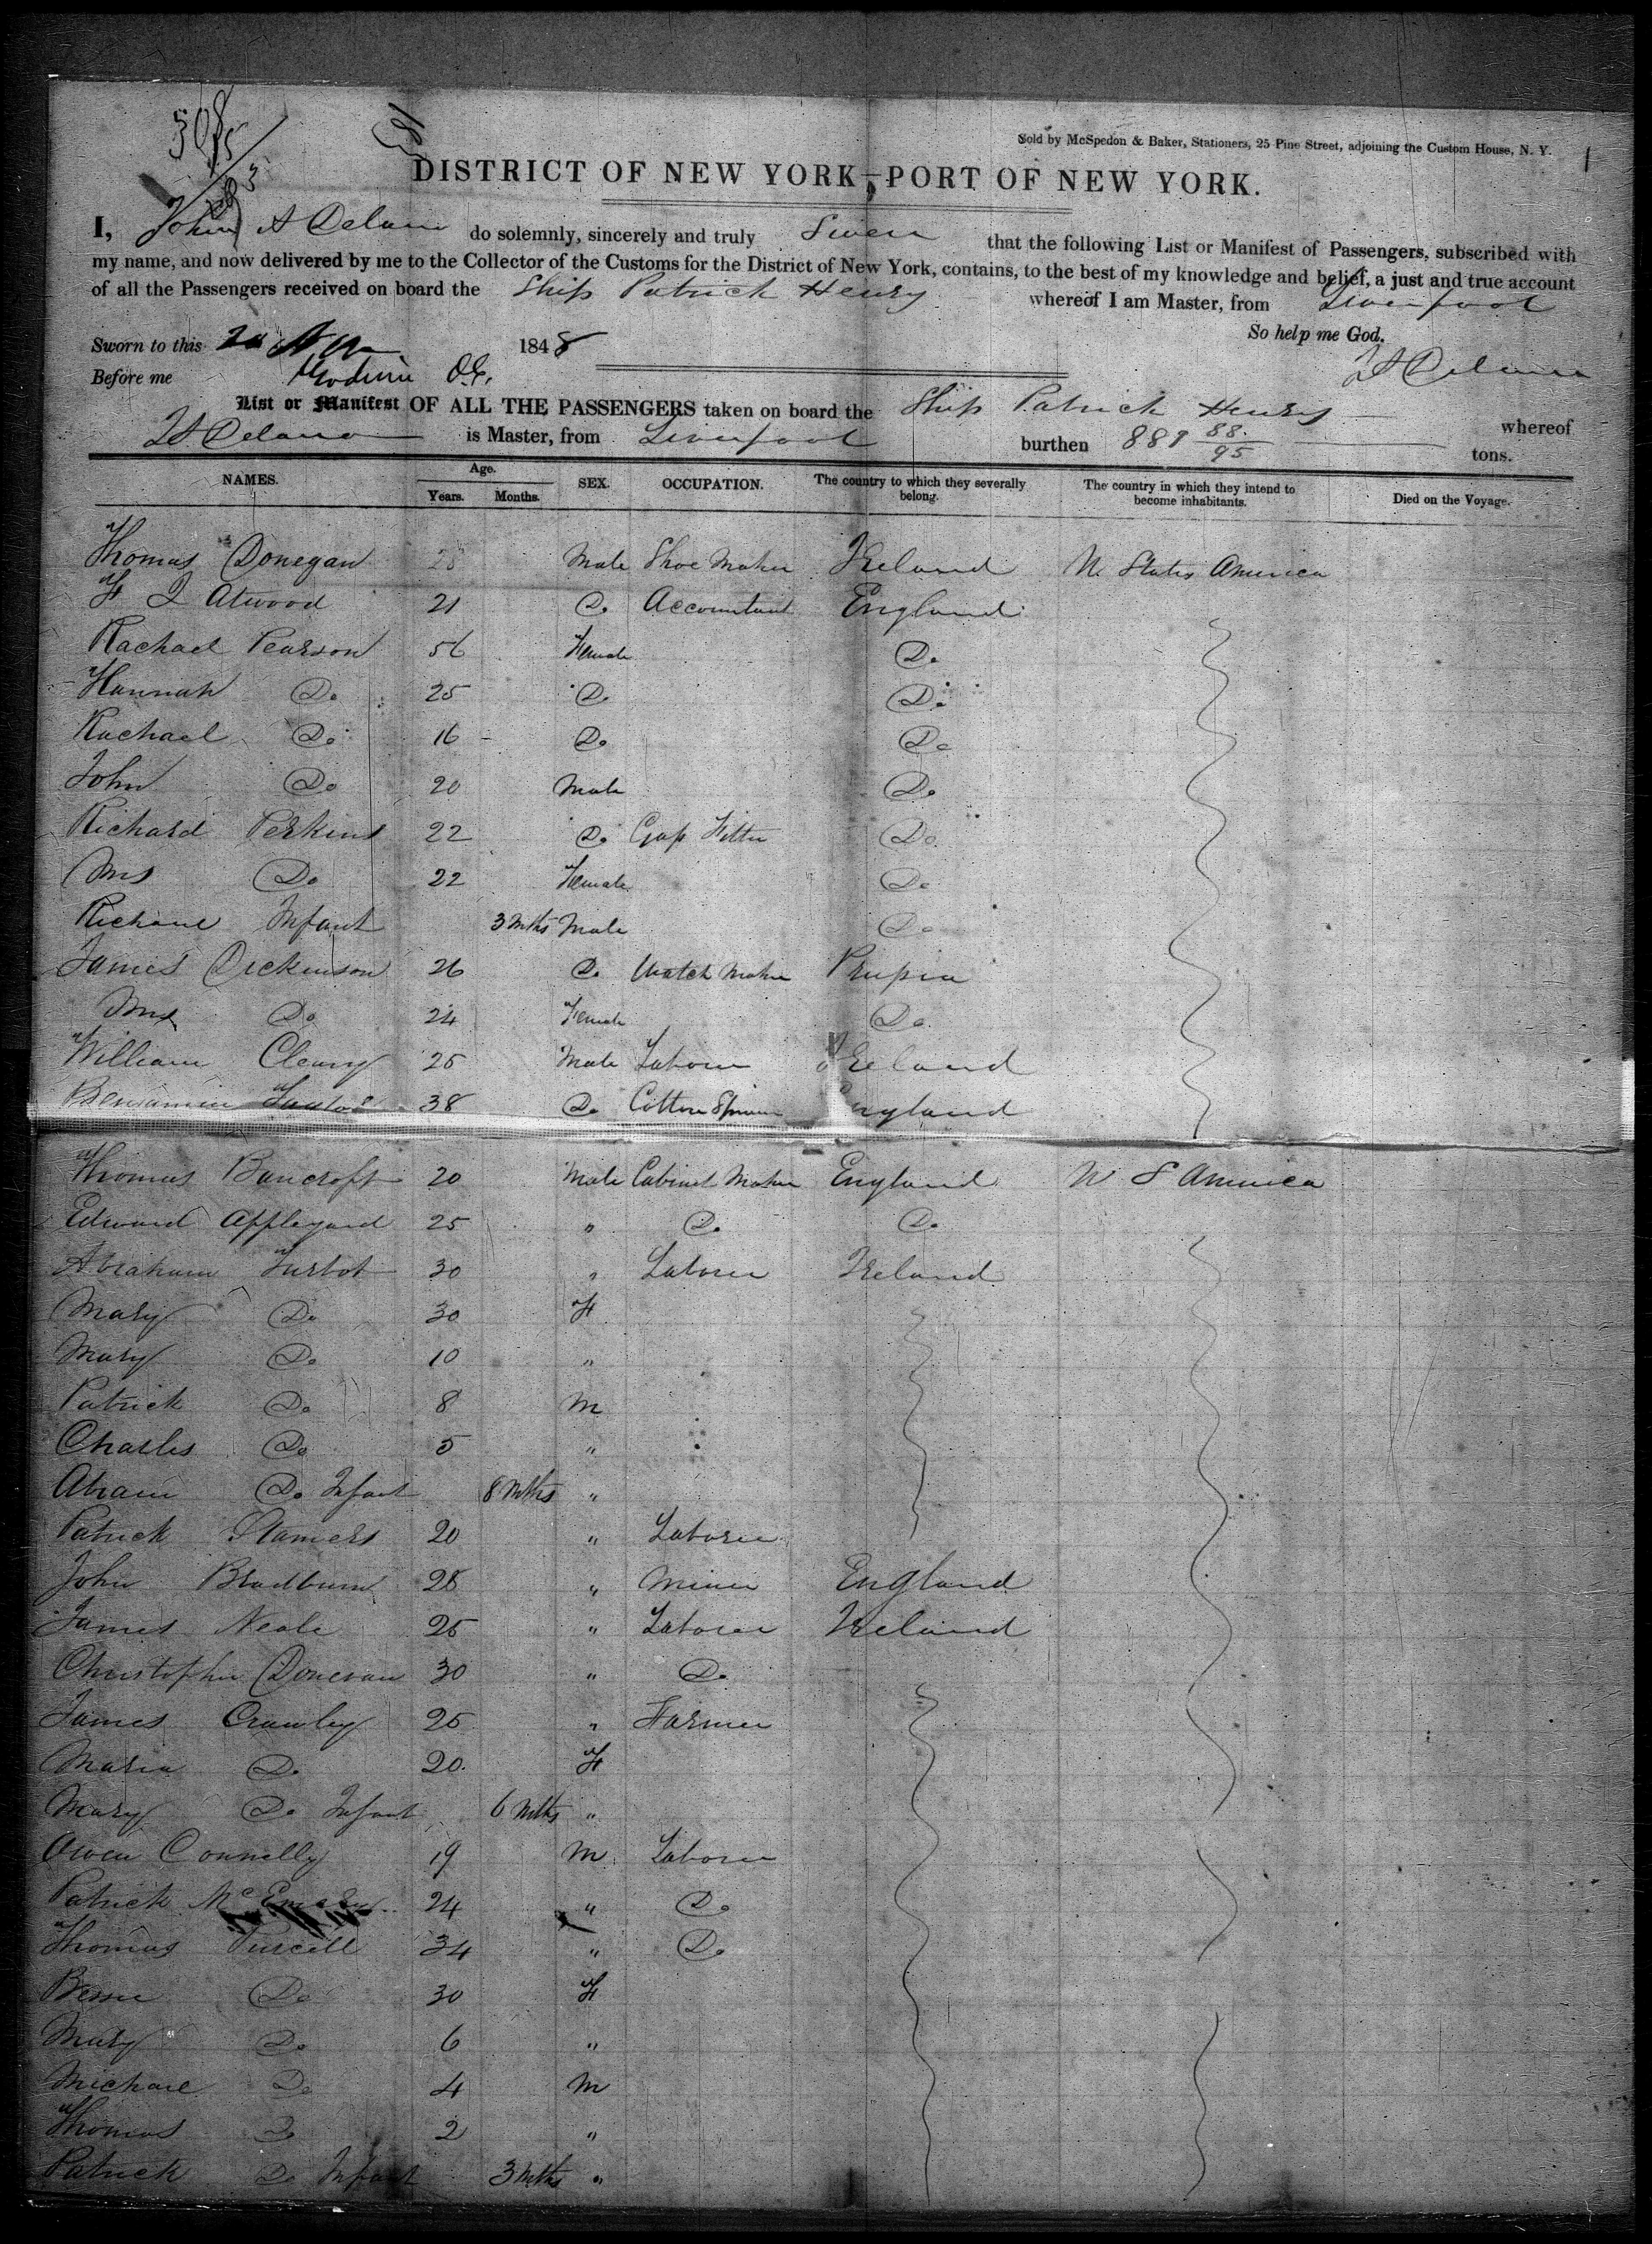 5085
Sold by McSpedon & Baker, Stationers, 25 Pine Street, adjoining the Custom House, N. Y.
DISTRICT OF NEW YORK—PORT OF NEW YORK.
I, John A Delano do solemnly, sincerely and truly Swear that the following List or Manifest of Passengers, subscribed with
my name, and now delivered by me to the Collector of the Customs for the District of New York, contains, to the best of my knowledge and belief, a just and true account
of all the Passengers received on board the Ship Patrick Henry whereof I am Master, from Liverpool
So help me God.
Sworn to this 1848
Before me J A Delano
List or Manifest OF ALL THE PASSENGERS taken on board the Ship Patrick Henry whereof
J A Delano is Master, from Liverpool burthen 881 88/95 tons.
NAMES. Age. Years. Months. SEX. OCCUPATION. The country to which they severally belong. The country in which they intend to become inhabitants. Died on the Voyage.
Thomas Donegan 28 Male Shoe Maker Ireland U. States America
F J Atwood 21 Do Accountant England
Rachael Pearson 56 Female Do
Hannah Do 25 Do Do
Rachael Do 16 Do Do
John Do 20 Male Do
Richard Perkins 22 Do Gass Fitter Do
Mrs Do 22 Female Do
Richard Infant 3 Mths Male Do
James Dickenson 26 Do Watch Maker Prussia
Mrs Do 24 Female Do
William Cleary 25 Male Laborer Ireland
Benjamin 38 Do Cotton Spinner England
Thomas Bancroft 20 Male Cabinet Maker England U S America
Edward Appleyard 25 " Do Do
Abraham Turbot 30 " Laborer Ireland
Mary Do 30 F
Mary Do 10 "
Patrick Do 8 M
Charles Do 5 "
Abram Do Infant 8 Mths "
Patrick Stamers 20 " Laborer
John Bradburn 28 " Miner England
James Neale 25 " Laborer Ireland
Christopher Donevan 30 " Do
James Crawley 25 " Farmer
Maria Do 20 F
Mary Do Infant 6 Mths "
Owen Connelly 19 M Laborer
Patrick 24 " Do
Thomas Purcell 34 " Do
Bessie Do 30 F
Mary Do 6 "
Michael Do 4 M
Thomas Do 2 "
Patrick Do Infant 3 Mths "